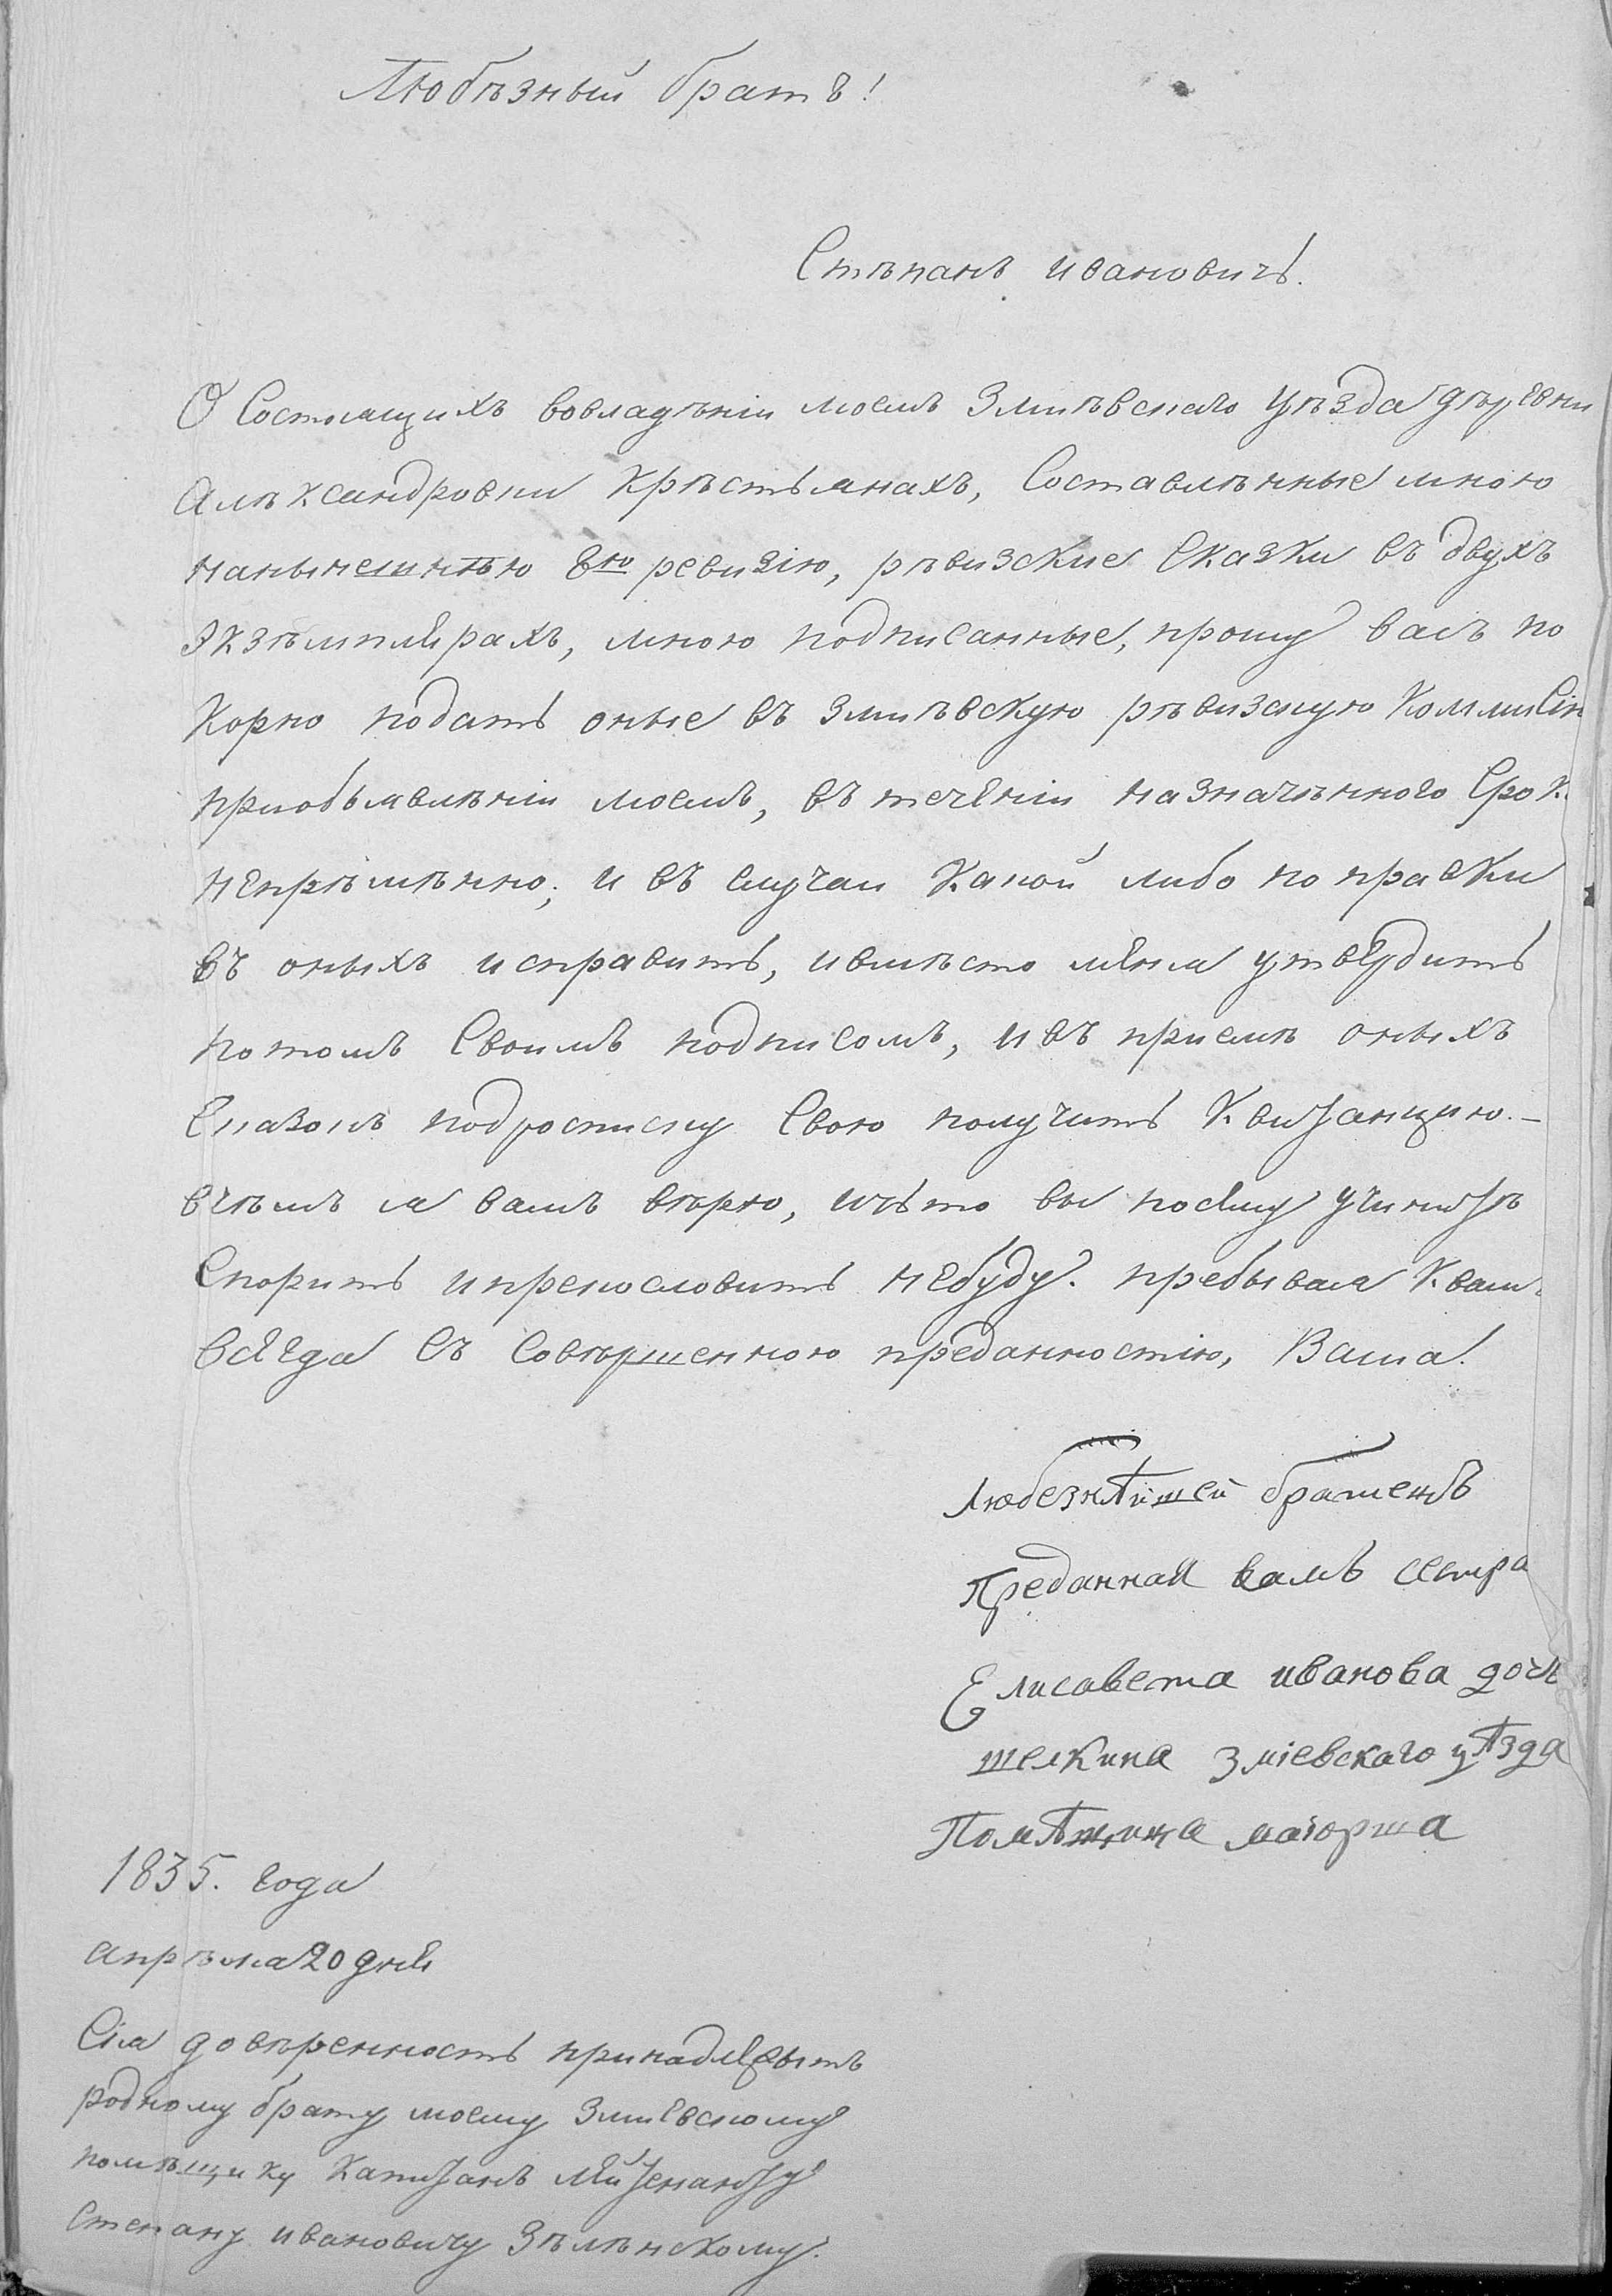 Любѣзный братъ!
Стѣпанъ ивановичь.
О Состоящихъ вовладѣніи моемъ Змиѣвскаго уѣзда дѣревни
Алѣксандровки Крѣстьянахъ, Составлѣнные мною
нанынешнюю 8ю ревизію, рѣвизские Сказки въ двухъ
Экзѣмплярахъ, мною подписанные, прошу васъ по
Корно подать оные въ Змиѣвскую рѣвизкую Коммисію
приобъявлѣніи моемъ, въ течении назначѣнного Срок
непрѣмѣнно; и въ случаи Какой либо поправки
въ оныхъ исправить, ивмѣсто мѣня утвердить
потомъ Своимъ подписомъ, ивъ приемѣ оныхъ
Сказокъ подросписку Свою получить Квитанцию.-
вчѣмъ я вамъ вѣрю, ичьто вы посему учинитѣ
Спорить ипрекословить небуду. пребывая Квам
всегда съ Совѣршенною преданностію, Ваша.
Любезнѣйшей братецъ
Преданная вамъ сестра
Елисавета иванова дочь
шелкина Зміевскаго уѣзда
Помѣщица маіорша
1835. года
апрѣля 20 дня
Сія довѣренность принадлежытъ
родному брату моему Змиевскому
помѣщику Капитанъ лейтенанту
Степану ивановичу Зѣлѣнскому.